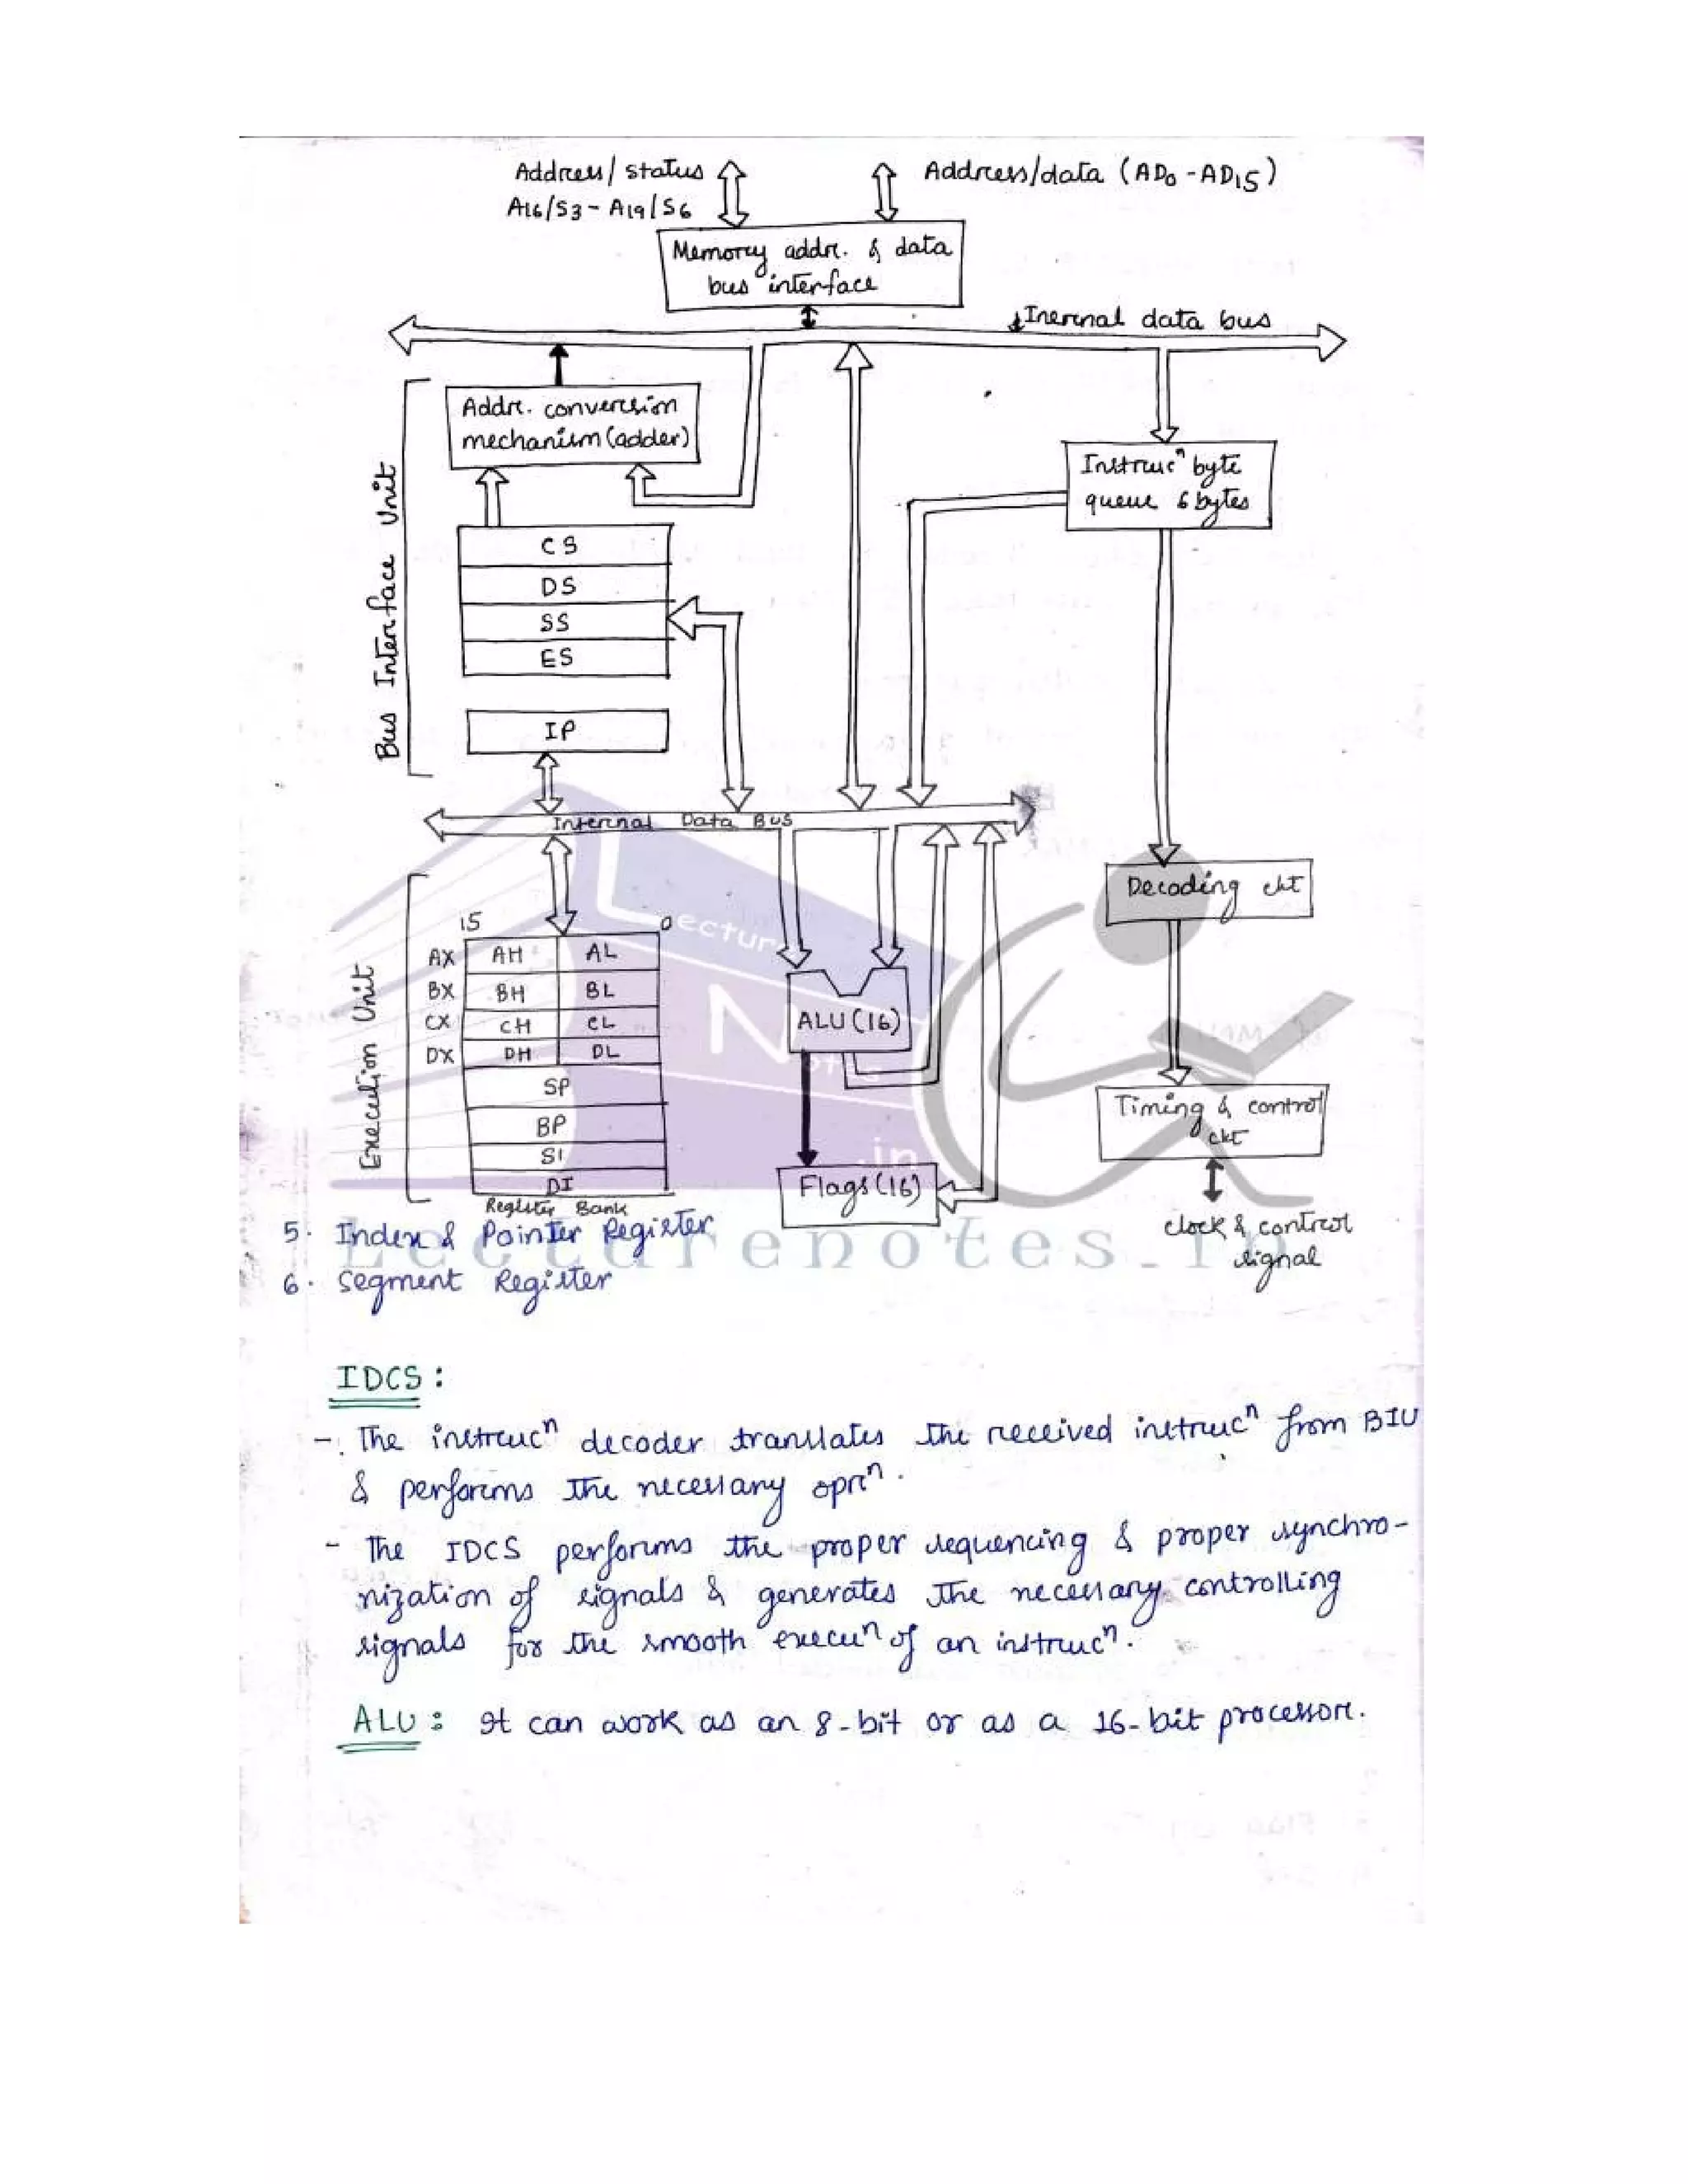 Address/status
A16/S3 - A19/S6
Address/data (AD0 - AD15)
Memory addr. & data
bus interface
Inernal data bus
Bus Interface Unit
Addr. conversion
mechanism (adder)
Instrucⁿ byte
queue 6 bytes
CS
DS
SS
ES
IP
Internal Data Bus
Execution Unit
15 0
AX AH AL
BX BH BL
CX CH CL
DX DH DL
SP
BP
SI
DI
Register Bank
ALU (16)
Flags (16)
Decoding ckt
Timing & control
ckt
clock & control
signal
Lecture
Notes
.in
Lecturenotes.in
5. Index & Pointer Register
6. Segment Register
IDCS :
- The instrucⁿ decoder translates the received instrucⁿ from BIU
& performs the necessary oprⁿ.
- The IDCS performs the proper sequencing & proper synchro-
nization of signals & generates the necessary controlling
signals for the smooth execuⁿ of an instrucⁿ.
ALU : It can work as an 8-bit or as a 16-bit processor.